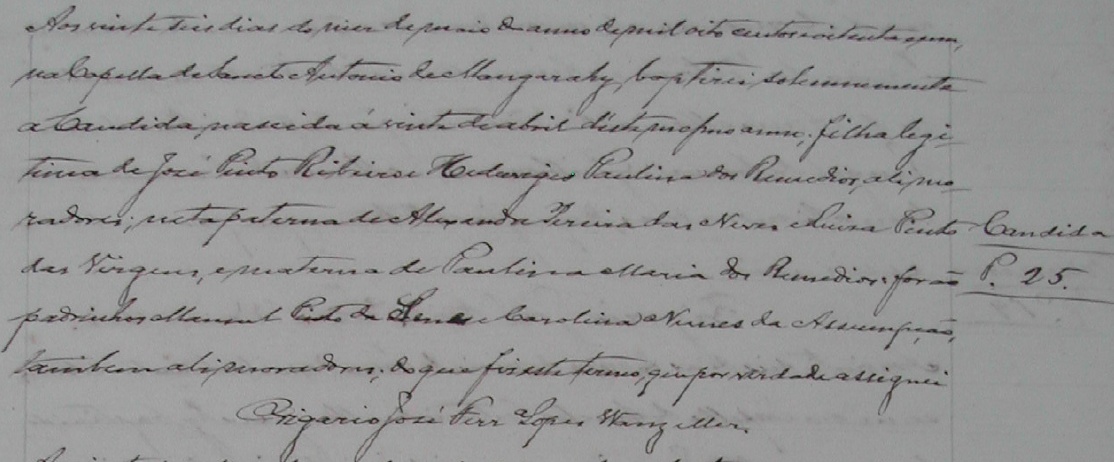 Aos vinte seis dias do mez de maio do anno de mil oito centos e oitenta e um,
na Capella de Sancto Antonio de Mangarahy, baptisei solemnemente
a Candida, nascida á vinte de abril d'este mesmo anno, filha legi-
tima de José Pinto Ribeiro e Hedwiges Paulina dos Remedios, ali mo-
radores; neta paterna de Alexandre Pereira das Neves e Luisa Pinto
das Virgens, e materna de Paulina Maria dos Remedios: forão
padrinhos Manoel Pinto de e Carolina Nunes da Assumpção,
tambem ali moradores; do que fiz este termo, que por verdade assignei
Vigario José Ferr.ª Lopes Wanzeller.
Candida
P. 25.